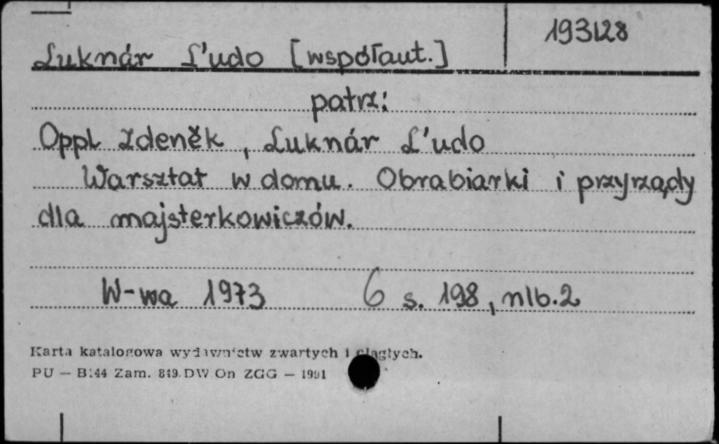 193128
Luknár L'udo [współaut.]
patrz:
Oppl Zdeněk, Luknár L'udo
Warsztat w domu. Obrabiarki i przyrządy
dla majsterkowiczów.
W-wa 1973 6 s. 198, nlb.2
Karta katalogowa wydawnictw zwartych i ciągłych.
PU — B144 Zam. 819. DW On ZGG — 1991